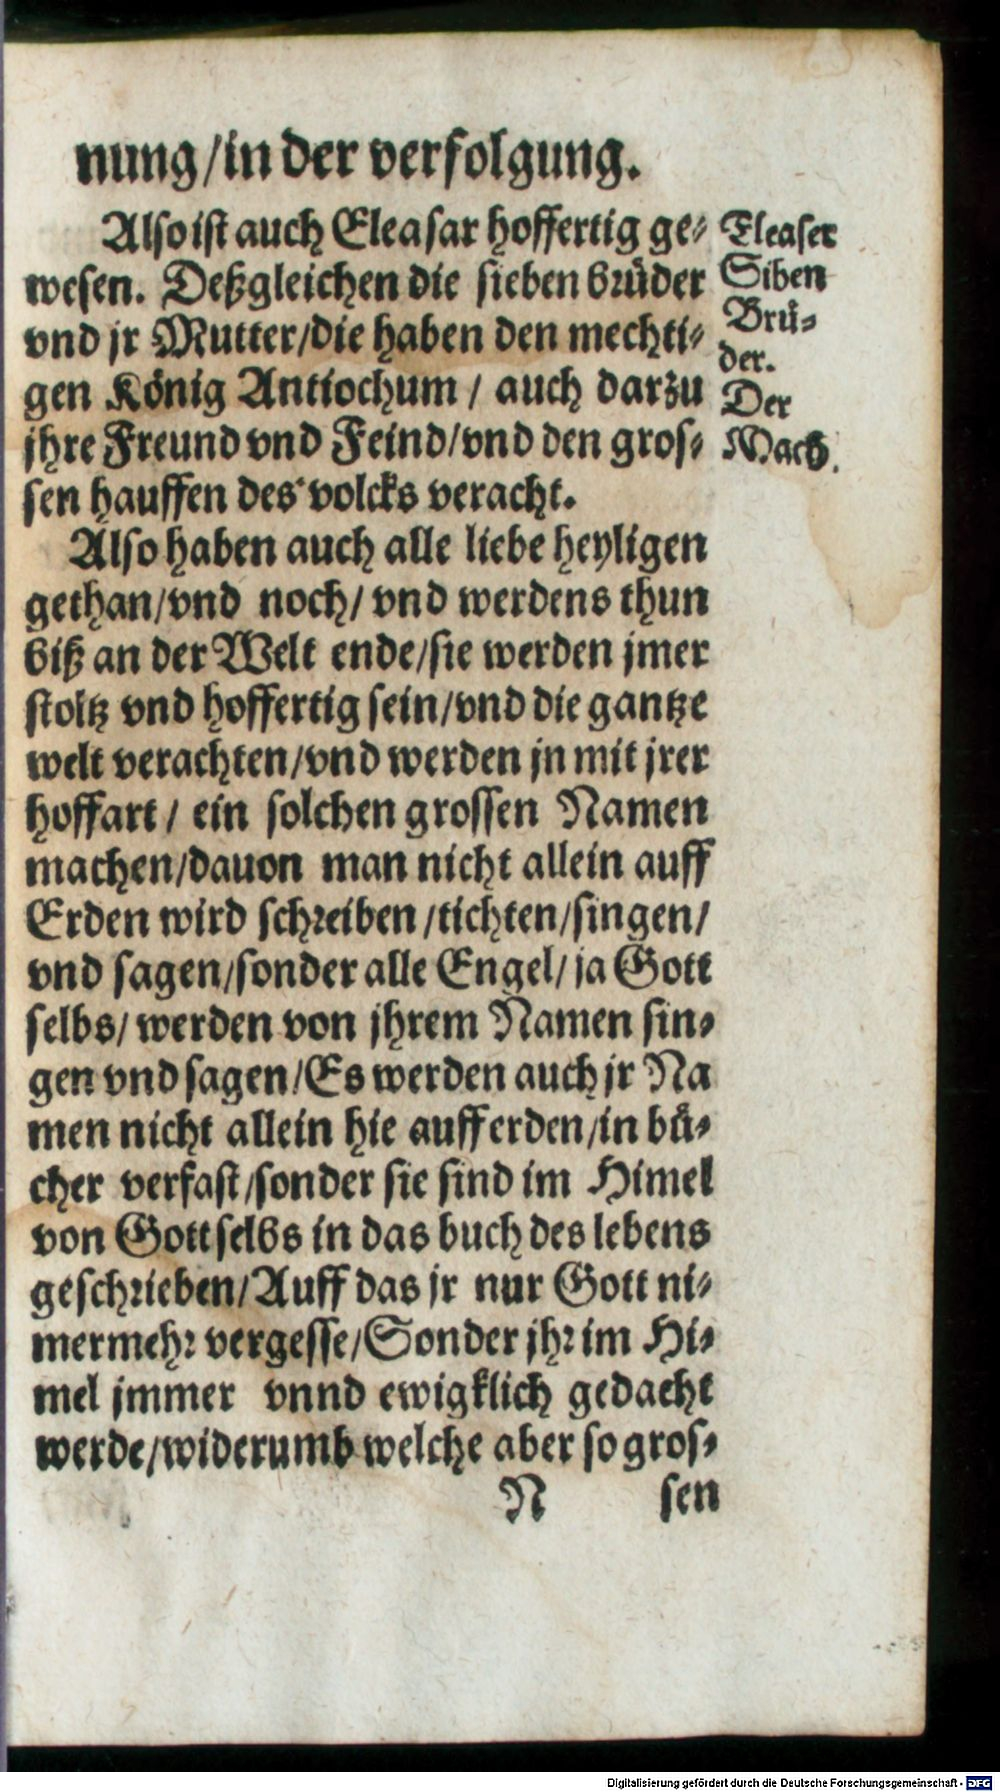 nung/in der verfolgung.
Also ist auch Eleasar hoffertig ge-
wesen. Deßgleichen die sieben brüder
vnd jr Mutter/die haben den mechti-
gen König Antiochum / auch darzu
jhre Freund vnd Feind/vnd den gros-
sen hauffen des volcks veracht.
Eleaser
Siben
Brü-
der.
Der
Mach.
Also haben auch alle liebe heyligen
gethan/vnd noch/ vnd werdens thun
biß an der Welt ende/sie werden jmer
stoltz vnd hoffertig sein/vnd die gantze
welt verachten/vnd werden jn mit jrer
hoffart / ein solchen grossen Namen
machen/dauon man nicht allein auff
Erden wird schreiben /tichten/singen/
vnd sagen/sonder alle Engel/ ja Gott
selbs/ werden von jhrem Namen sin-
gen vnd sagen/Es werden auch jr Na
men nicht allein hie auff erden/in bü-
cher verfast/sonder sie sind im Himel
von Gott selbs in das buch des lebens
geschrieben/Auff das jr nur Gott ni-
mermehr vergesse/Sonder jhr im Hi-
mel jmmer vnnd ewigklich gedacht
werde/widerumb welche aber so gros-
N sen
Digitalisierung gefördert durch die Deutsche Forschungsgemeinschaft - DFG